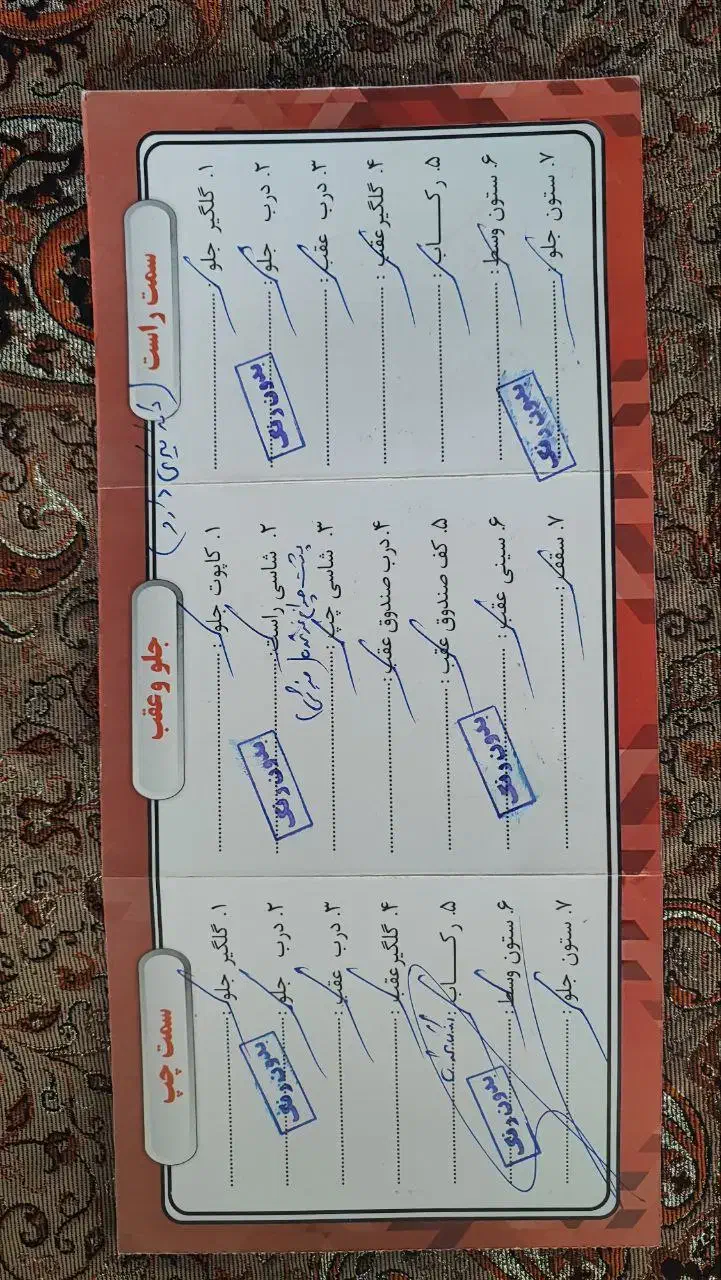 سمت راست
۱. گلگیر جلو :
۲. درب جلو :
۳. درب عقب :
۴. گلگیر عقب :
۵. رکـــاب :
۶. ستون وسط :
۷. ستون جلو :
بدون رنگ
بدون رنگ
جلو و عقب
۱. کاپوت جلو :
۲. شاسی راست :
پشت چراغ
۳. شاسی چپ :
۴. درب صندوق عقب :
۵. کف صندوق عقب :
۶. سینی عقب :
۷. سقف :
بدون رنگ
بدون رنگ
سمت چپ
۱. گلگیر جلو :
۲. درب جلو :
۳. درب عقب :
۴. گلگیر عقب :
۵. رکـــاب :
۶. ستون وسط :
۷. ستون جلو :
بدون رنگ
بدون رنگ